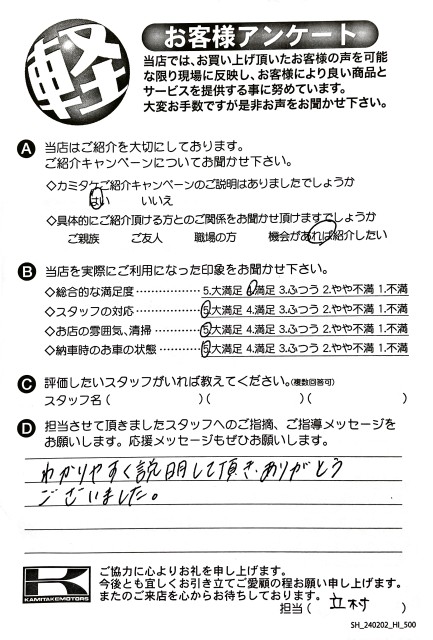 軽
お客様アンケート
当店では、お買い上げ頂いたお客様の声を可能
な限り現場に反映し、お客様により良い商品と
サービスを提供する事に努めています。
大変お手数ですが是非お声をお聞かせ下さい。
A 当店はご紹介を大切にしております。
ご紹介キャンペーンについてお聞かせ下さい。
◇カミタケご紹介キャンペーンのご説明はありましたでしょうか
はい いいえ
◇具体的にご紹介頂ける方とのご関係をお聞かせ頂けますでしょうか
ご親族 ご友人 職場の方 機会があれば紹介したい
B 当店を実際にご利用になった印象をお聞かせ下さい。
◇総合的な満足度……………5.大満足 4.満足 3.ふつう 2.やや不満 1.不満
◇スタッフの対応……………5.大満足 4.満足 3.ふつう 2.やや不満 1.不満
◇お店の雰囲気、清掃………5.大満足 4.満足 3.ふつう 2.やや不満 1.不満
◇納車時のお車の状態………5.大満足 4.満足 3.ふつう 2.やや不満 1.不満
C 評価したいスタッフがいれば教えてください。(複数回答可)
スタッフ名( )( )( )
D 担当させて頂きましたスタッフへのご指摘、ご指導メッセージを
お願いします。応援メッセージもぜひお願いします。
わかりやすく説明して頂き、ありがとう
ございました。
K KAMITAKEMOTORS
ご協力に心よりお礼を申し上げます。
今後とも宜しくお引き立てご愛顧の程お願い申し上げます。
またのご来店を心からお待ちしております。
担当( 立村 )
SH_240202_HI_500